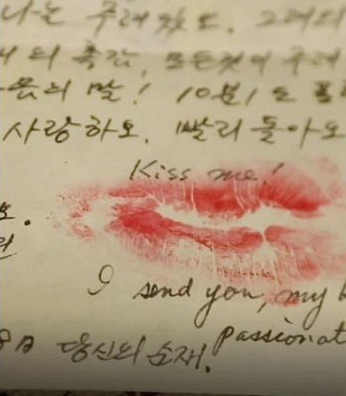 나는 주려있소. 그대의
의 촉감, 모든것이 주려
음의 말! 10분1도
사랑하오. 빨리 돌아오
Kiss me!
I send you, my
Passionat
당신의 소재.